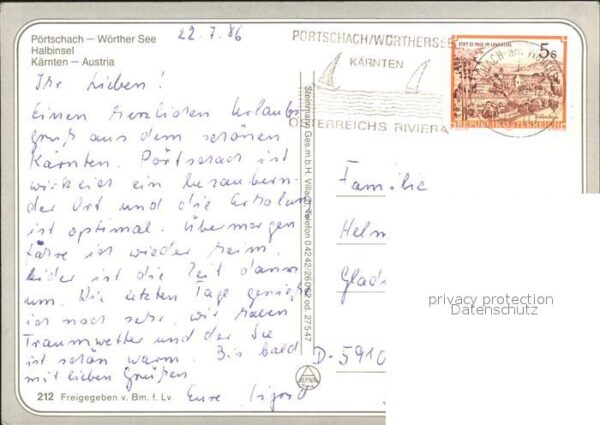 Pörtschach – Wörther See
Halbinsel
Kärnten – Austria
22.7.86
PÖRTSCHACH/WÖRTHERSEE
KÄRNTEN
ÖSTERREICHS RIVIERA
STIFT ST. PAUL IM LAVANTTAL
5 S
REPUBLIK ÖSTERREICH
Ihr Lieben!
Einen herzlichen Urlaubs
gruß aus dem schönen
Kärnten. Pörtschach ist
wirklich ein bezaubern-
der Ort und die Erholung
ist optimal. Übermorgen
fahre ich wieder heim.
Leider ist die Zeit dann
um. Die letzten Tage genieße
ich noch sehr, wir haben
Traumwetter und der See
ist schön warm. Bis bald
mit lieben Grüßen
Eure Sigrid
Familie
Helm
Glad
D-5910
Ges.m.b.H. Villach, Telefon 04242/26052 od. 27547
ALPINA
privacy protection
Datenschutz
212 Freigegeben v. Bm. f. Lv